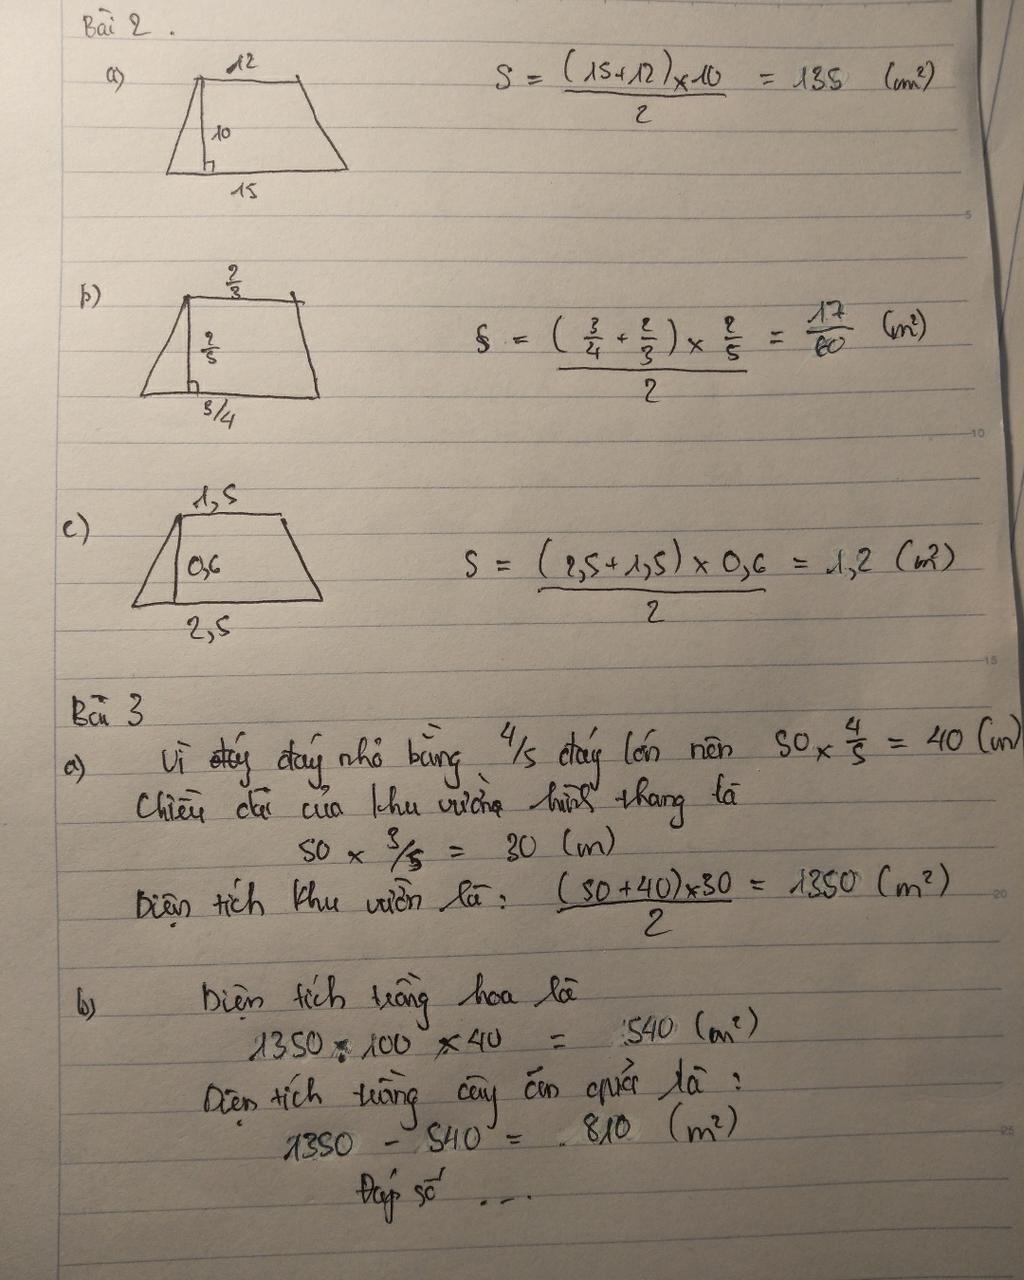 Bài 2.
a)
12
10
15
S = (15+12) x 10 / 2 = 135 (m²)
b)
2/3
2/5
3/4
S = (3/4 + 2/3) x 2/5 / 2 = 17/60 (m²)
c)
1,5
0,6
2,5
S = (2,5+1,5) x 0,6 / 2 = 1,2 (m²)
Bài 3
a) Vì đáy nhỏ bằng 4/5 đáy lớn nên 50 x 4/5 = 40 (m)
Chiều dài của khu vườn hình thang là
50 x 3/5 = 30 (m)
Diện tích khu vườn là: (50+40)x30 / 2 = 1350 (m²)
b) Diện tích trồng hoa là
1350 : 100 x 40 = 540 (m²)
Diện tích trồng cây ăn quả là:
1350 - 540 = 810 (m²)
Đáp số ...
5
10
15
20
25